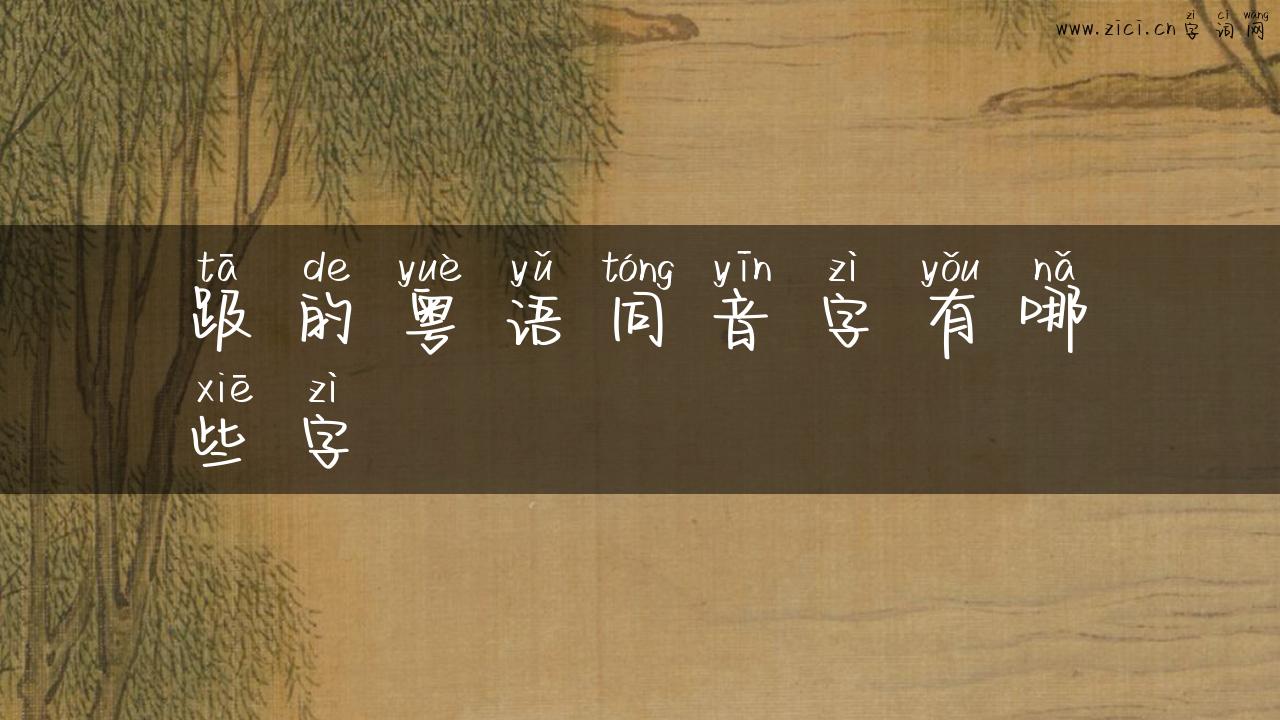 zì cí wǎng
www.zici.cn字词网
tā de yuè yǔ tóng yīn zì yǒu nǎ
趿的粤语同音字有哪
xiē zì
些字